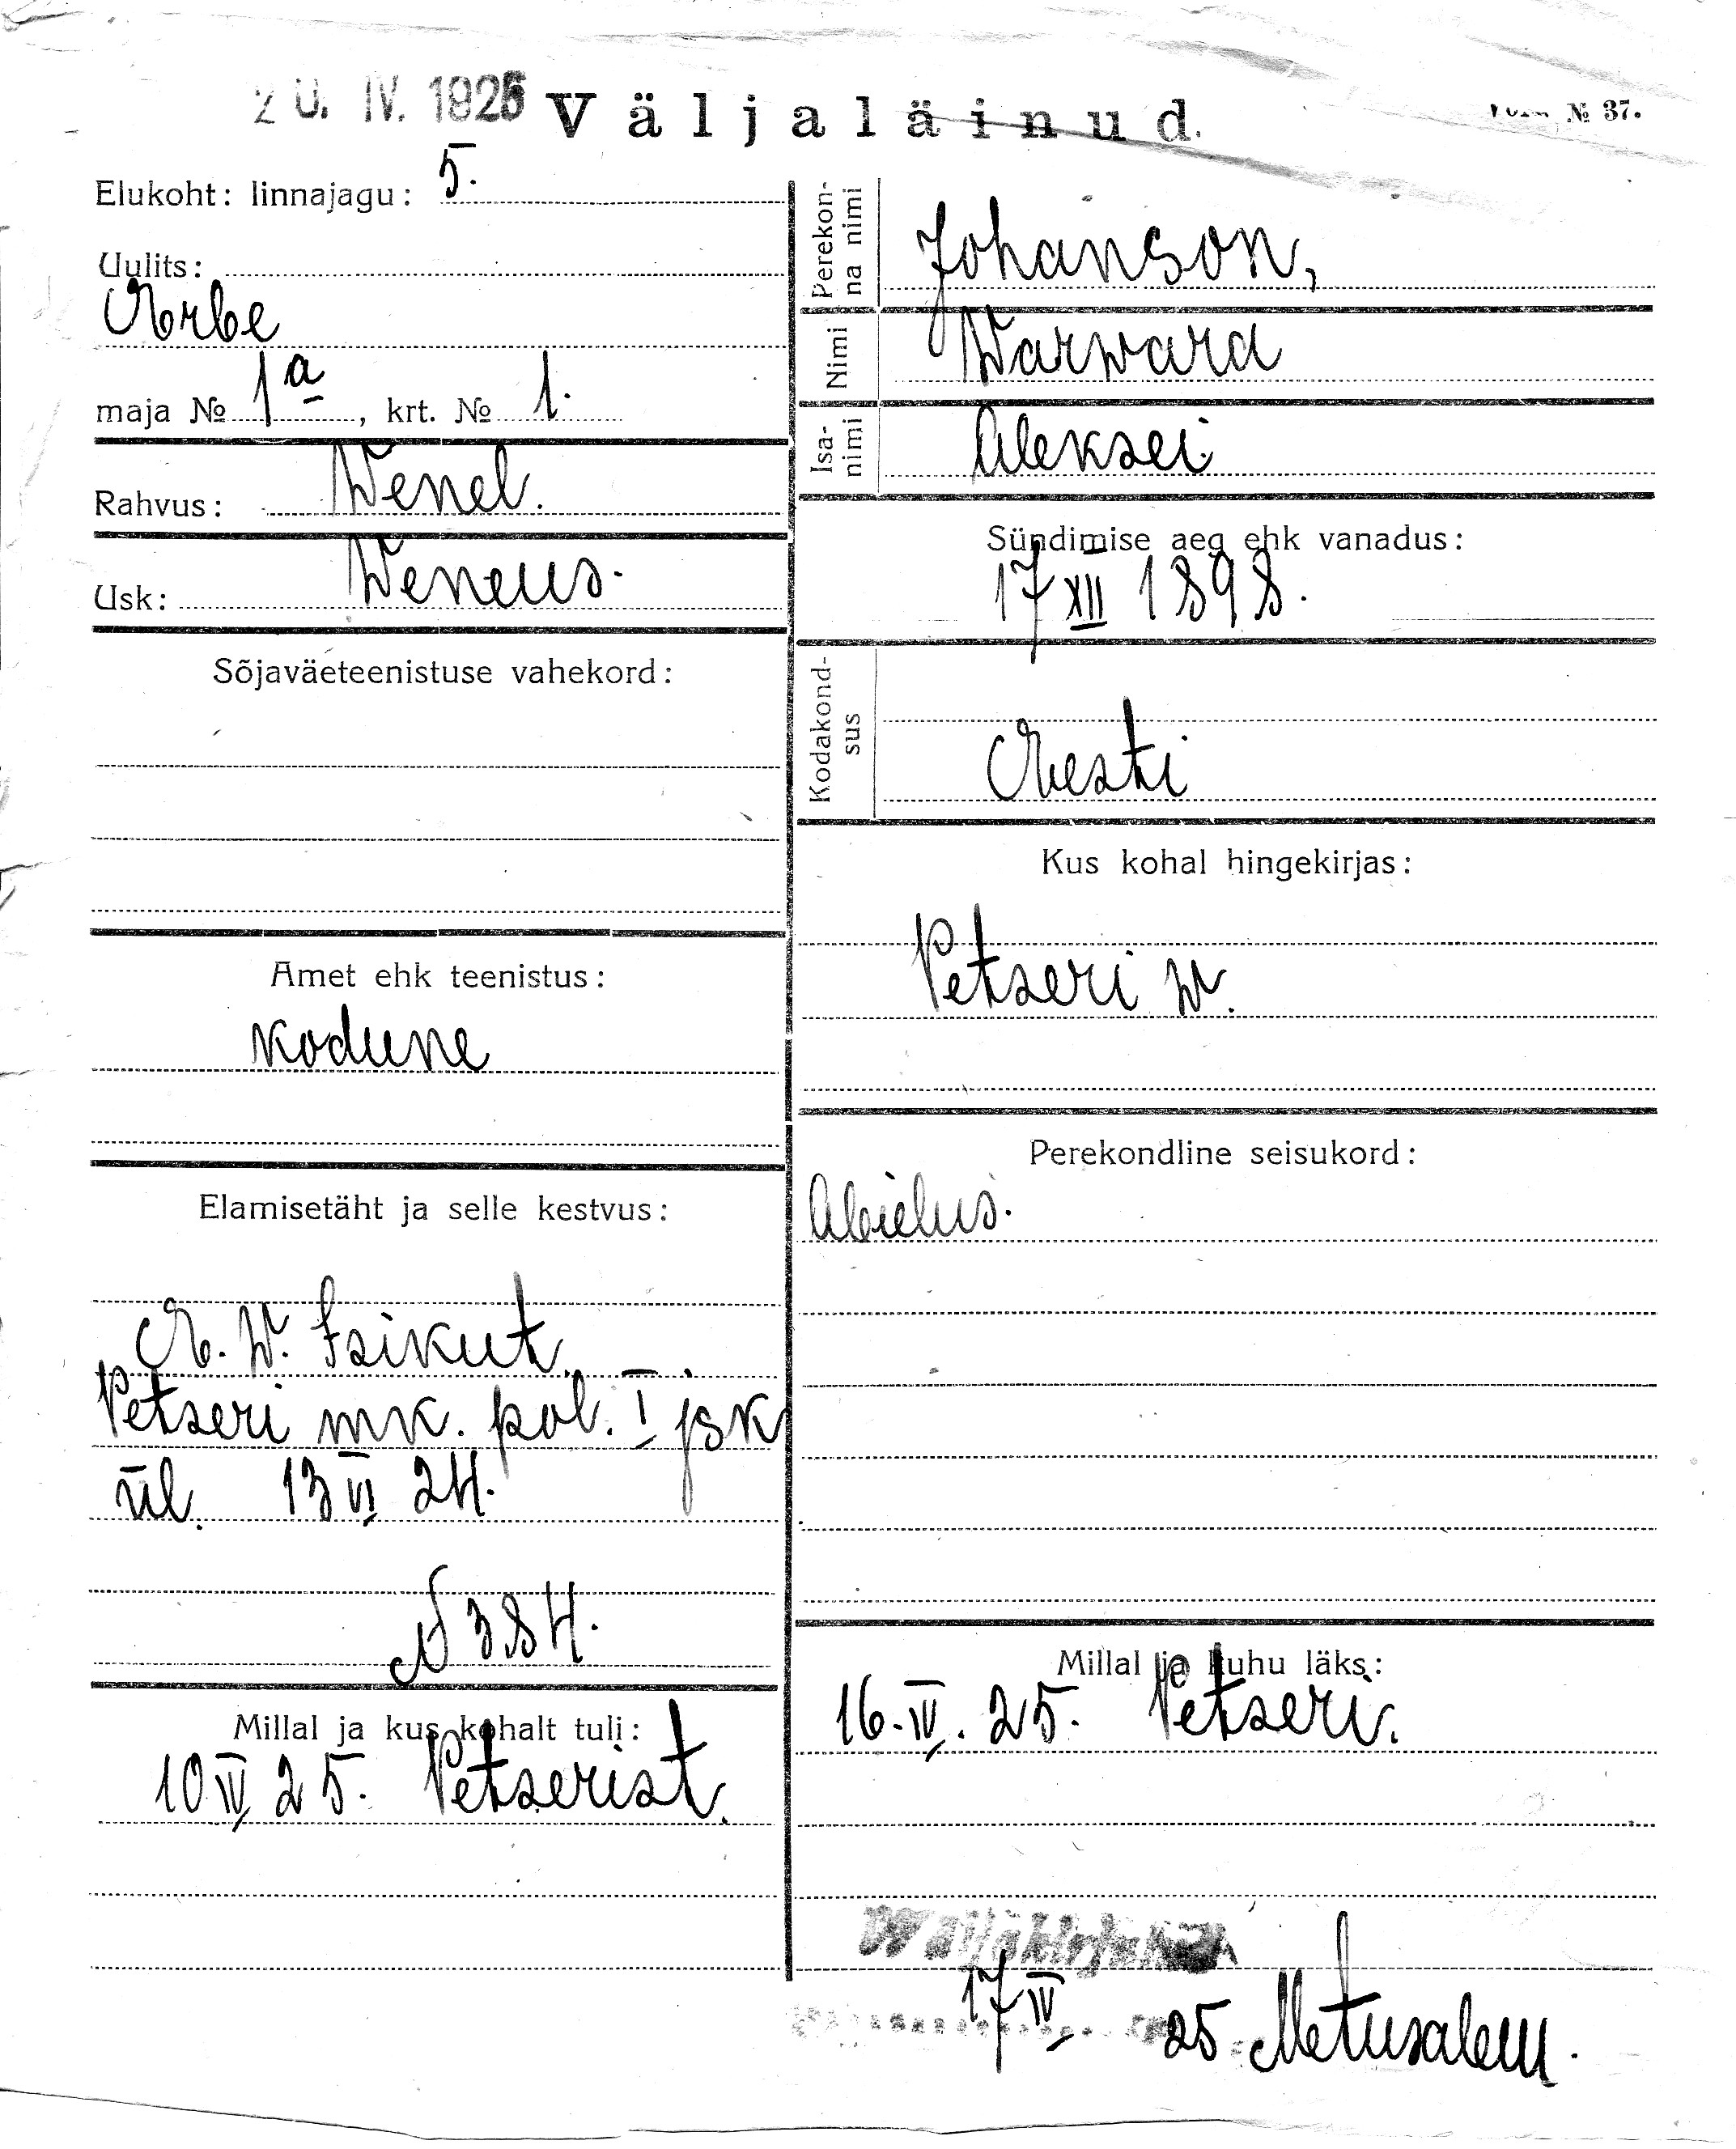 20. IV. 1925 Väljaläinud.
№ 37.
Elukoht: linnajagu: 5.
Uulits:
Erbe
maja № 1a, krt. № 1.
Rahvus: Wenel.
Usk: Weneus.
Sõjaväeteenistuse vahekord:
Amet ehk teenistus:
kodune
Elamisetäht ja selle kestvus:
E. W. Isikut.
Petseri mk. pol. I jsk
ül. 13 VI 24.
N 384.
Millal ja kus kohalt tuli:
10 IV 25. Petserist.
Perekonna nimi Johanson,
Nimi Warwara
Isanimi Aleksei
Sündimise aeg ehk vanadus:
17 XII 1898.
Kodakondsus
Eesti
Kus kohal hingekirjas:
Petseri w.
Perekondline seisukord:
Abielus.
Millal ja kuhu läks:
16. IV. 25. Petseri.
17 IV 25 Metusalem.